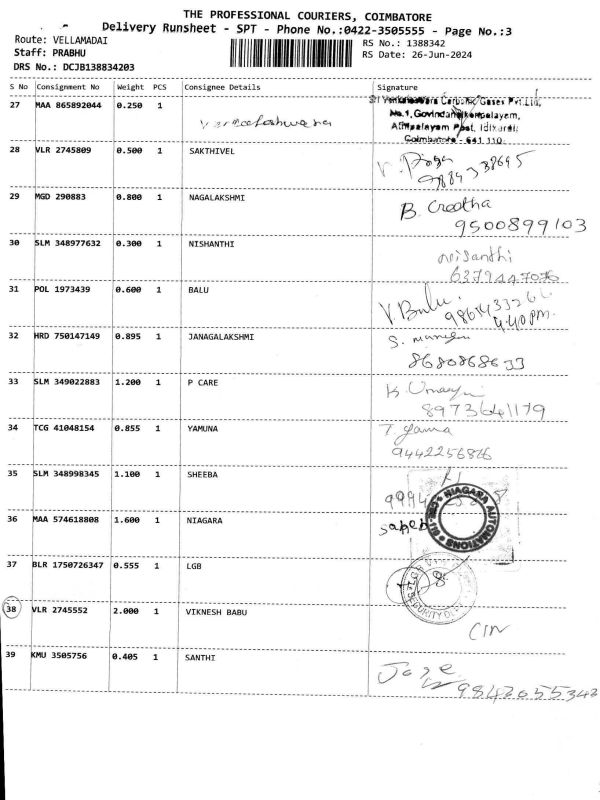 THE PROFESSIONAL COURIERS, COIMBATORE
Delivery Runsheet - SPT - Phone No.:0422-3505555 - Page No.:3
Route: VELLAMADAI
RS No.: 1388342
Staff: PRABHU
RS Date: 26-Jun-2024
DRS No.: DCJB138834203
S No Consignment No Weight PCS Consignee Details Signature
27 MAA 865892044 0.250 1
Sri Venkateswara Carbonic Gases Pvt.Ltd,
No.1, Govindanaickenpalayam,
Athipalayam Post, Idikarai
Coimbatore - 641 110
28 VLR 2745809 0.500 1 SAKTHIVEL
29 MGD 290883 0.800 1 NAGALAKSHMI
B.
9500899103
30 SLM 348977632 0.300 1 NISHANTHI
Nisanthi
6379447076
31 POL 1973439 0.600 1 BALU
V. Balu.
4.40pm.
32 HRD 750147149 0.895 1 JANAGALAKSHMI
S.
8680868633
33 SLM 349022883 1.200 1 P CARE
K.
8973641179
34 TCG 41048154 0.855 1 YAMUNA
T.
9442256876
35 SLM 348998345 1.100 1 SHEEBA
36 MAA 574618808 1.600 1 NIAGARA
NIAGARA AUTOMATIONS
37 BLR 1750726347 0.555 1 LGB
38 VLR 2745552 2.000 1 VIKNESH BABU
39 KMU 3505756 0.405 1 SANTHI
Jose